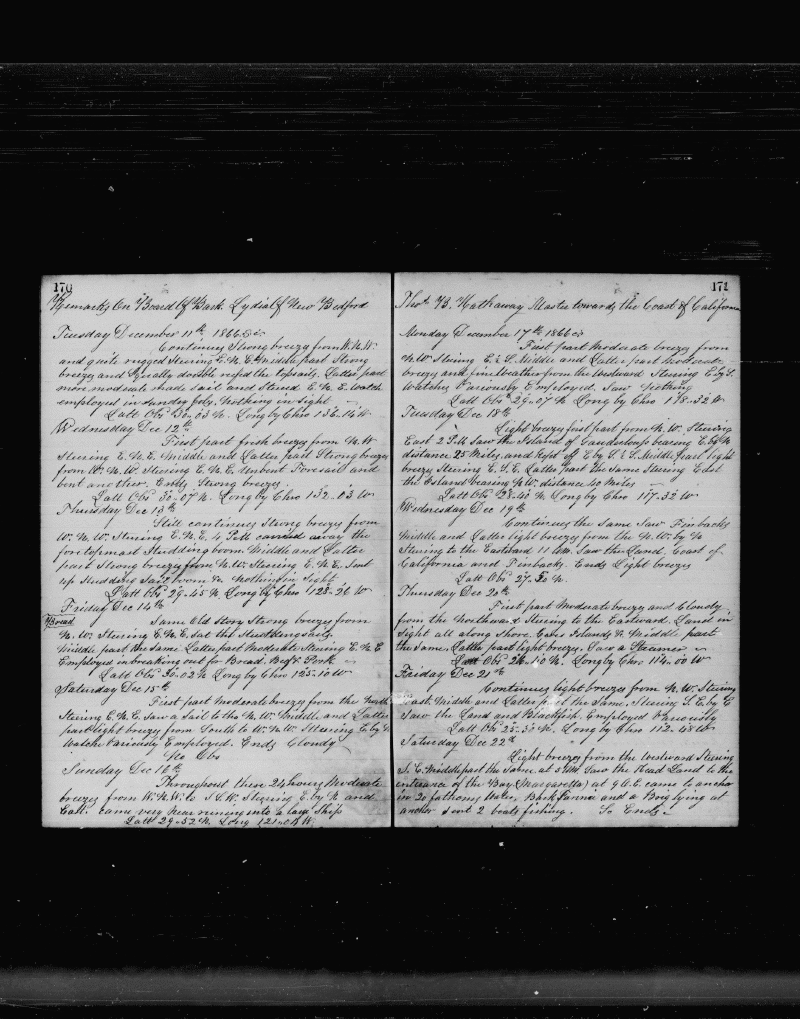 170
Remarks On Board of Bark Lydia of New Bedford
Tuesday December 11th, 1866
Continues Strong breezes from W.N.W
and quite rugged Steering E.N.E. Middle part Strong
breezes and Squally double reefd the topsails. Latter part
more moderate made sail and Steerd E.N.E. Watch
employed in sundry jobs, Nothing in Sight
Latt Obs 30-03 N. Long by Chro 136-14 W
Wednesday Dec 12th
First part fresh breezes from N.W
Steering E.N.E. Middle and Latter part Strong breezes
from W.N.W. Steering E.N.E. Unbent Foresail and
bent another. Ends Strong breezes.
Latt Obs 30-07 N. Long by Chro 132-03 W
Thursday Dec 13th
Still continues Strong breezes from
W.N.W. Steering E.N.E. 4 P.M. carried away the
fore topmast Studding boom Middle and Latter
part Strong breezes from N.W. Steering E.N.E. Sent
up Studding Sail boom Nothing in Sight
Latt Obs 29-45 N. Long by Chro 128-20 W
Friday Dec 14th
Bread
Same Old Story Strong breezes from
N.W. Steering E.N.E. Set the Studdingsails.
Middle part the Same. Latter part Moderate Steering E.N.E
Employed in breaking out for Bread. Beef & Pork
Latt Obs 30-02 N Long by Chro 125-10 W
Saturday Dec 15th
First part Moderate breezes from the North
Steering E.N.E. Saw a Sail to the N.W. Middle and Latter
part light breezes from South to W.N.W. Steering E. by N
Watch Variously Employed. Ends Cloudy
No Obs
Sunday Dec 16th
Throughout these 24 hours Moderate
breezes from W.N.W. to S.S.W. Steering E. by N and
East. came very near runing into a large Ship
Latt 29-52 N Long 121- W.
171
Thos B. Hathaway Master towards the Coast of California
Monday December 17th 1866
First part Moderate breezes from
N.W. Steering E & S. Middle and Latter part Moderate
breezes and fine Weather from the Westward Steering E by S.
Watches Variously Employed. Saw Nothing
Latt Obs 29-07 N Long by Chro 118-32 W
Tuesday Dec 18th
Light breezes first part from N.W. Steering
East 2 P.M. Saw the Island of Guadeloup bearing E by N
distance 25 Miles and kept of E by S. & S. Middle part light
breezes Steering E.S.E. Latter part the Same Steering East
the Island bearing N.W. distance 40 Miles
Latt Obs 28-43 N Long by Chro 117-32 W
Wednesday Dec 19th
Continues the Same Saw Finbacks
Middle and Latter light breezes from the N.W. by N
Steering to the Eastward 11 A.M. Saw the Land. Coast of
California and Finbacks. Ends Light breezes
Latt Obs 27-52 N.
Thursday Dec 20th
First part Moderate breezes and Cloudy
from the Northward Steering to the Eastward. Land in
Sight all along Shore Islands &c Middle part
the Same. Latter part light breezes. Saw a Steamer
Latt Obs 26-10 N. Long by Chro 114-00 W
Friday Dec 21st
Continues light breezes from N.W. Steering
East. Middle and Latter part the Same. Steering S.E. by E
Saw the Land and Blackfish. Employed Variously
Latt Obs 25-30 N. Long by Chro 112-48 W
Saturday Dec 22d
Light breezes from the Westward Steering
S.E. Middle part the Same. at 5 AM Saw the Head Land to the
entrance of the Bay (Margaretta) at 9 came to anchor
in 20 fathoms Water, Bark and a Brig lying at
anchor Sent 2 boats fishing. So Ends